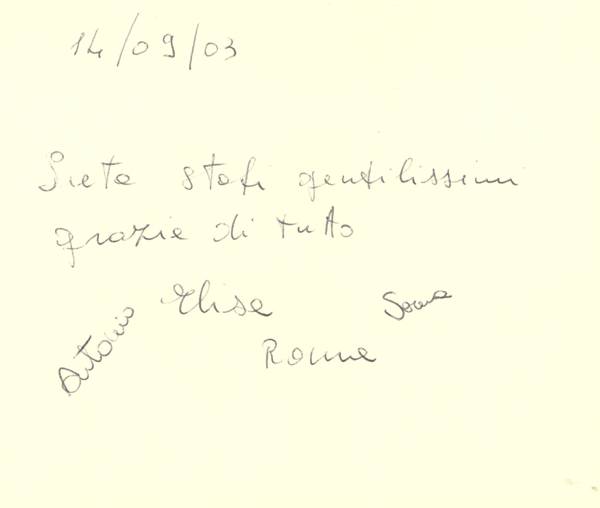 14/09/03
Siete stati gentilissimi
grazie di tutto
Elisa
Antonio
Roma